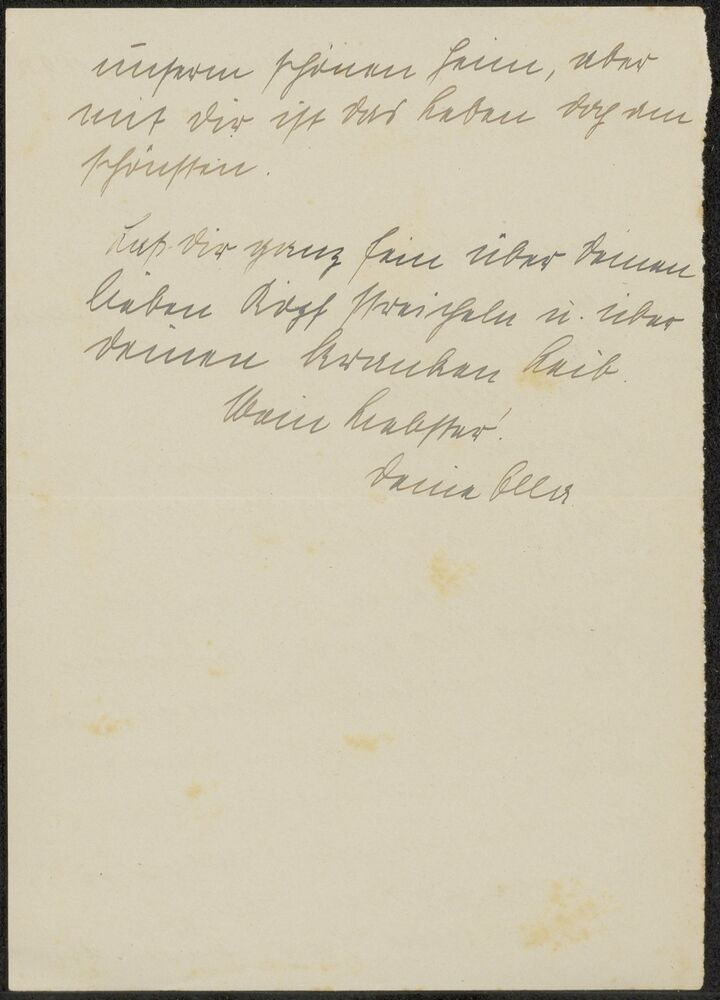 unserm schönen Heim, aber
mit Dir ist das Leben doch am
schönsten.
Laß Dir ganz fein über Deinen
lieben Kopf streicheln u. über
Deinen kranken Leib.
Mein Liebster!
Deine Ella